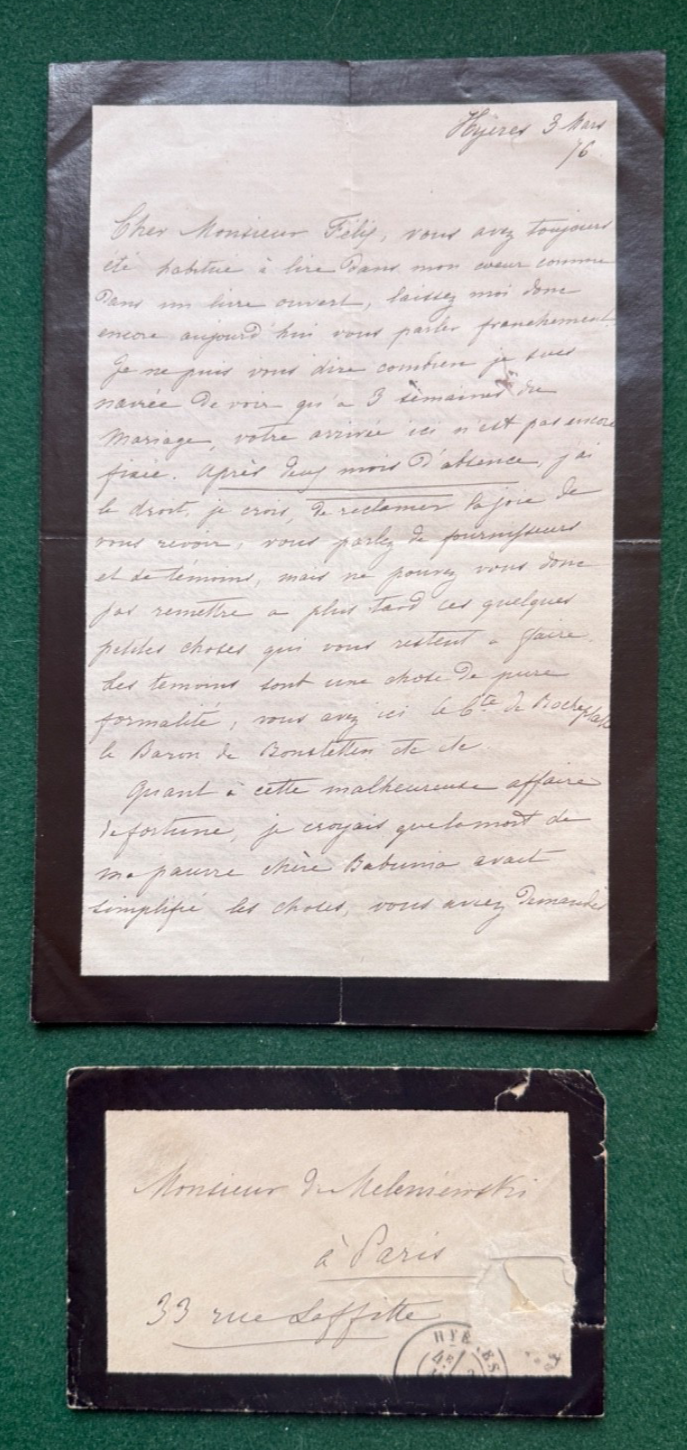 Hyères 3 Mars
76
Cher Monsieur Félix, vous avez toujours
été habitué à lire dans mon cœur comme
dans un livre ouvert, laissez moi donc
encore aujourd'hui vous parler franchement.
Je ne puis vous dire combien je suis
navrée de voir qu'à 3 semaines du
mariage, votre arrivée ici n'est pas encore
fixée. Après deux mois d'absence, j'ai
le droit, je crois, de réclamer la joie de
vous revoir, vous parlez de fournisseurs
et de témoins, mais ne pouvez vous donc
pas remettre a plus tard ces quelques
petites choses qui vous restent à faire.
Les témoins sont une chose de pure
formalité, vous avez ici le Cte de
le Baron de Bonstetten etc etc
Quant à cette malheureuse affaire
de fortune, je croyais que la mort de
ma pauvre chère Babunia avait
simplifié les choses, vous aviez demandé
Monsieur de
à Paris
33 rue Laffitte
HYÈRES